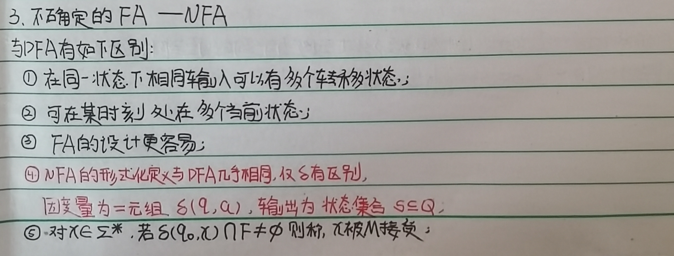 3. 不确定的 FA —NFA
与DFA有如下区别:
① 在同一状态下相同输入可以有多个转移状态;
② 可在某时刻处在多个当前状态;
③ FA的设计更容易;
④ NFA的形式化定义与DFA几乎相同,仅δ有区别,
因变量为二元组 δ(q,a),输出为 状态集合 S⊆Q;
⑤ 对x∈Σ*,若δ(q₀,x)∩F≠∅ 则称,x被M接受;